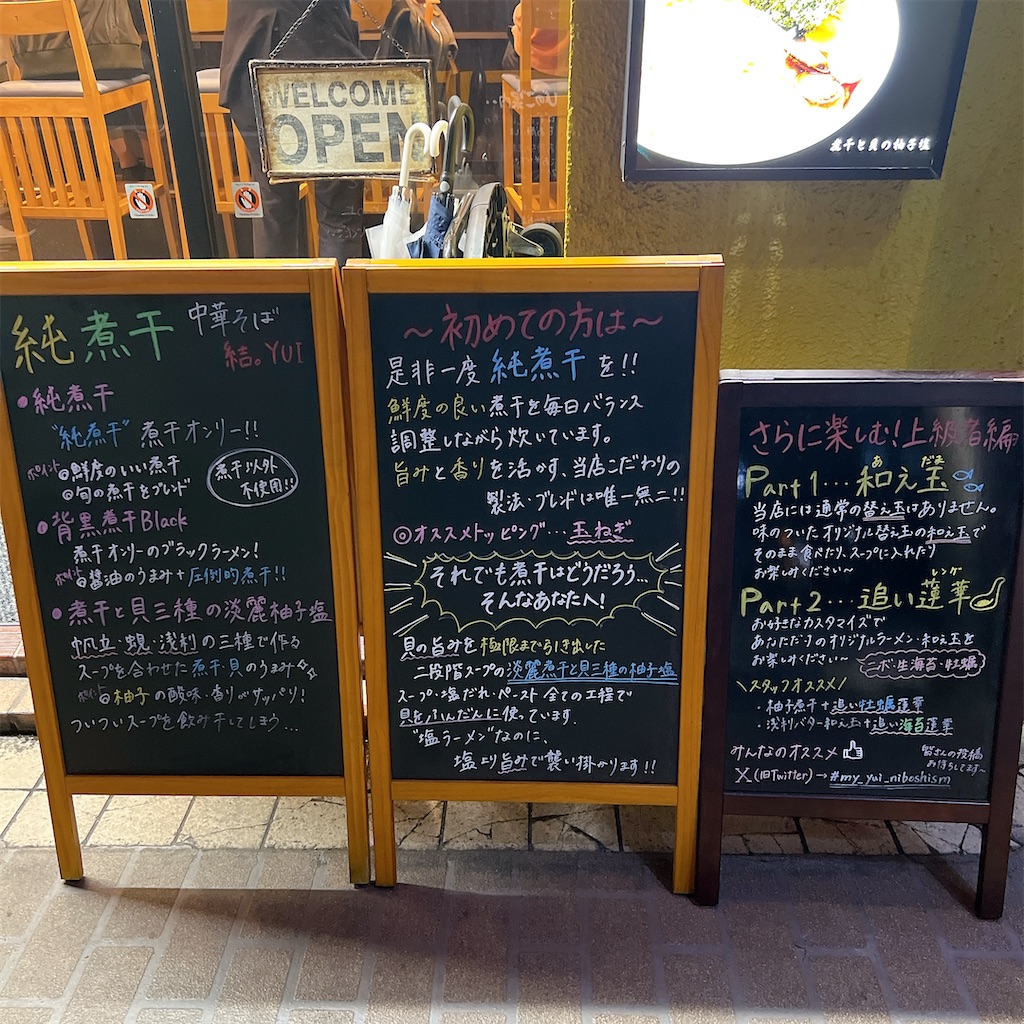 WELCOME
OPEN
煮干と貝の柚子塩
純煮干
中華そば
結。YUI
●純煮干
"純煮干" 煮干オンリー!!
ポイント 鮮度のいい煮干
旬の煮干をブレンド
煮干以外
不使用!!
●背黒煮干Black
煮干オンリーのブラックラーメン!
ポイント 醤油のうまみ+圧倒的煮干!!
●煮干と貝三種の淡麗柚子塩
帆立・蜆・浅利の三種で作る
スープを合わせた煮干・貝のうまみ
ポイント 柚子の酸味・香りがサッパリ!
ついついスープを飲み干してしまう…
〜初めての方は〜
是非一度 純煮干 を!!
鮮度の良い煮干を毎日バランス
調整しながら炊いています。
旨みと香りを活かす、当店こだわりの
製法・ブレンドは唯一無二!!
◎オススメトッピング…玉ねぎ
それでも煮干はどうだろう…
そんなあなたへ!
貝の旨みを極限まで引き出した
二段階スープの淡麗煮干と貝三種の柚子塩
スープ・塩だれ・ペースト 全ての工程で
貝をふんだんに使っています。
"塩ラーメン"なのに、
塩より旨みで襲い掛かります!!
さらに楽しむ!上級者編
Part1…和え玉
あ だま
当店には通常の替え玉はありません。
味のついたオリジナル替え玉の和え玉で
そのまま食べたり、スープに入れたり
お楽しみください〜
レンゲ
Part2…追い蓮華
お好きなカスタマイズで
あなただけのオリジナルラーメン・和え玉を
お楽しみください〜
ニボ・生海苔・牡蠣
\スタッフオススメ/
・柚子煮干+追い牡蠣蓮華
・浅利バター和え玉+追い海苔蓮華
みんなのオススメ
皆さんの投稿
お待ちしてます〜
X(旧Twitter)→#my_yui_niboshism